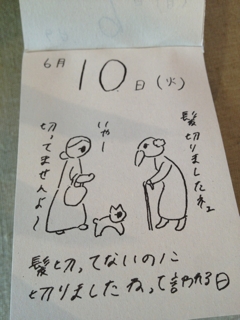 6月
10日(火)
髪切りましたネェ
いやー
切ってませんよ〜
髪切ってないのに
切りましたねって言われる日